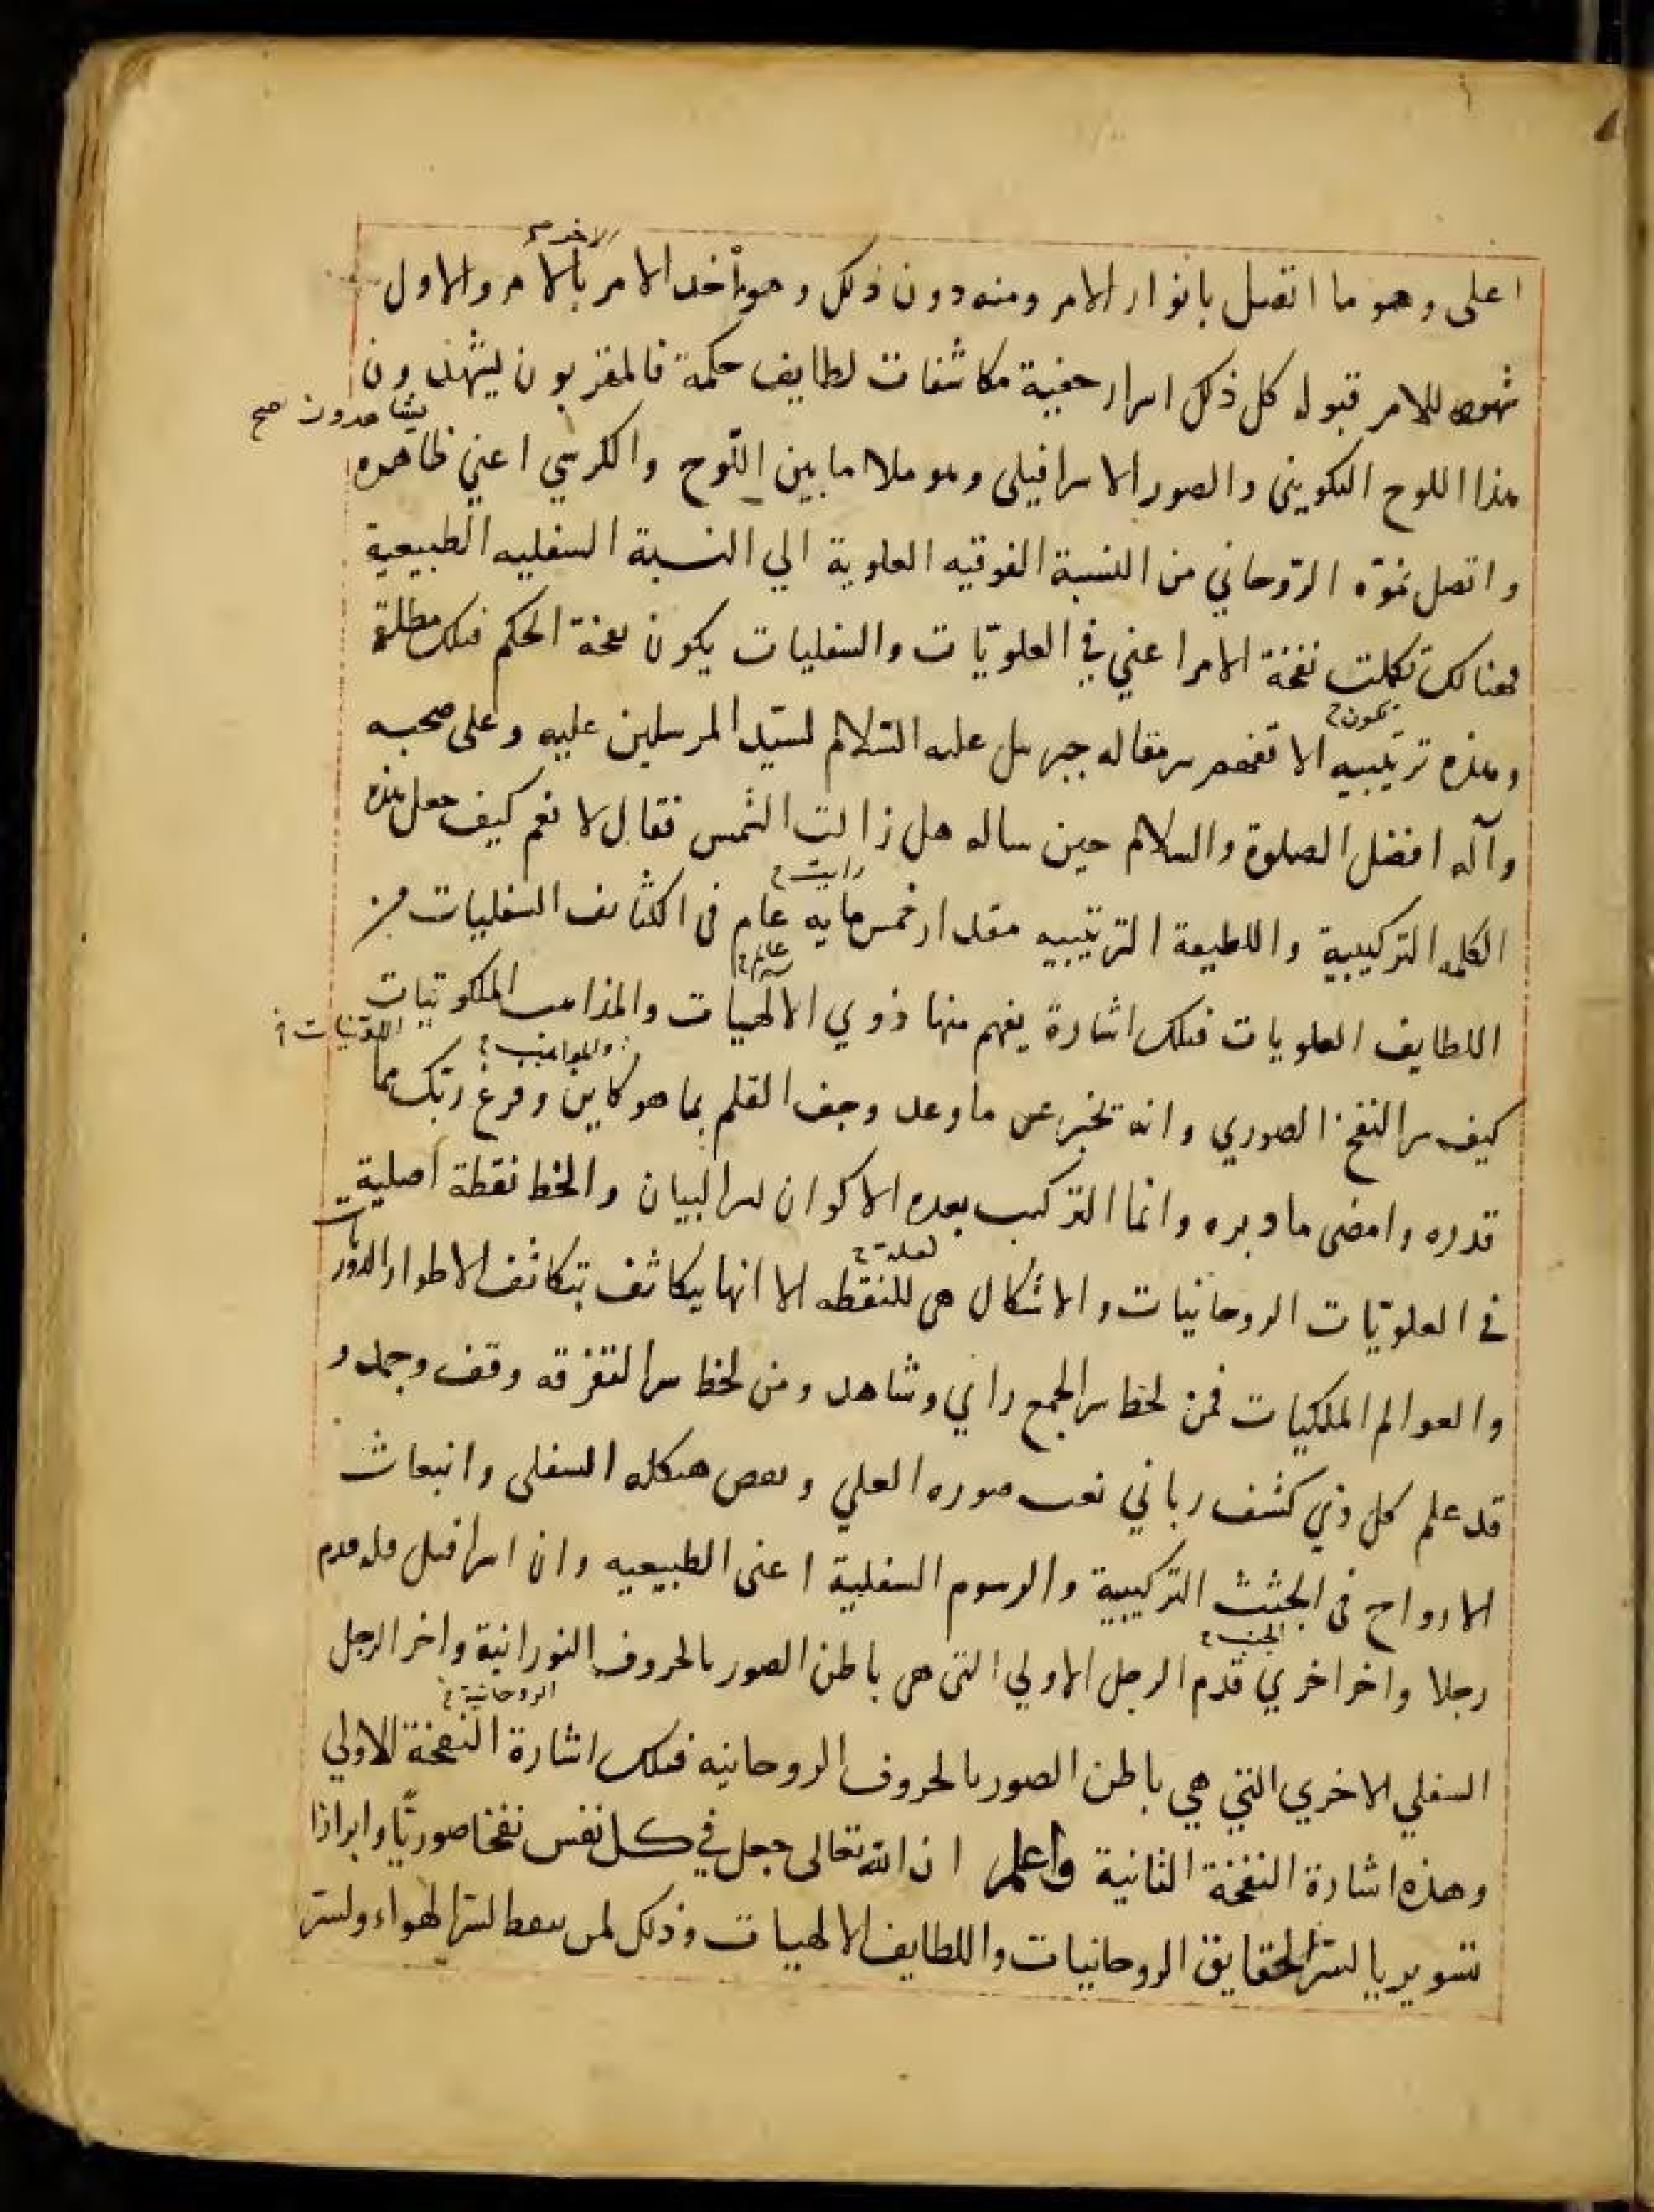 الاخر صح
اعلى وهو ما اتصل بانوار الامر ومنه دون ذلك وهو أخد الامر بالامر والاول
للامر قبول كل ذلك اسرار خفية مكاشفات لطايف حكمة فالمقربون يشهدون
يشاهدون صح
هذا اللوح التكويني والصور الاسرافيلى وهو ملا ما بين اللوح والكرسي اعني ظاهره
واتصل نموّه الروحاني من النسبة الفوقيه العلوية الي النسبة السفليه الطبيعية
فهنالك تكملت نفخة الامر اعني في العلويّات والسفليات يكون نفخة الحكم فتلك مطلقة
تكون
وهذه ترتيبيه الا تفهم سر مقاله جبريل عليه السّلام لسيّد المرسلين عليه وعلى صحبه
وآله افضل الصلوة والسلام حين ساله هل زالت الشمس فقال لا نعم كيف جعل هذه
رايت
الكلمه التركيبية واللطيفة الترتيبيه مقدار خمس مايه عام في الكثائف السفليات من
عالم
اللطايف العلويات فتلك اشارة يفهم منها ذوي الالهيات والمذاهب الملكوتيات
والمواهب
كيف سر النفخ الصوري وانه تخبر عن ما وعد وجف القلم بما هو كاين وفرغ ربّك مما
قدره وامضى ما دبره وانما التركيب بعده الاكوان لسر البيان والخط نقطة اصلية
في العلويّات الروحانيات والاشكال هى للنقطه الا انها يتكاثف بتكاثف الاطوار الدوريات
والعوالم الملكيات فمن لحظ سر الجمع راي وشاهد ومن لحظ سر التفرقه وقف وجمد و
قد علم كل ذي كشف رباني نعت صوره العلي وبعض هيكله السفلى وانبعاث
الارواح في الجثث التركيبية والرسوم السفلية اعنى الطبيعيه وان اسرافيل قد قدم
رجلا واخر اخري قدم الرجل الاولي التى هى باطن الصور بالحروف النورانية واخر الرجل
الروحانية
السفلي الاخري التي هي باطن الصور بالحروف الروحانيه فتلك اشارة النفخة الاولي
وهذه اشارة النفخة الثانية واعلم ان الله تعالى جعل في كل نفس نفخا صوريّا وابرازا
بالسّر الحقايق الروحانيات واللطايف الالهيات وذلك لمن لسّر الهواء ولسّر